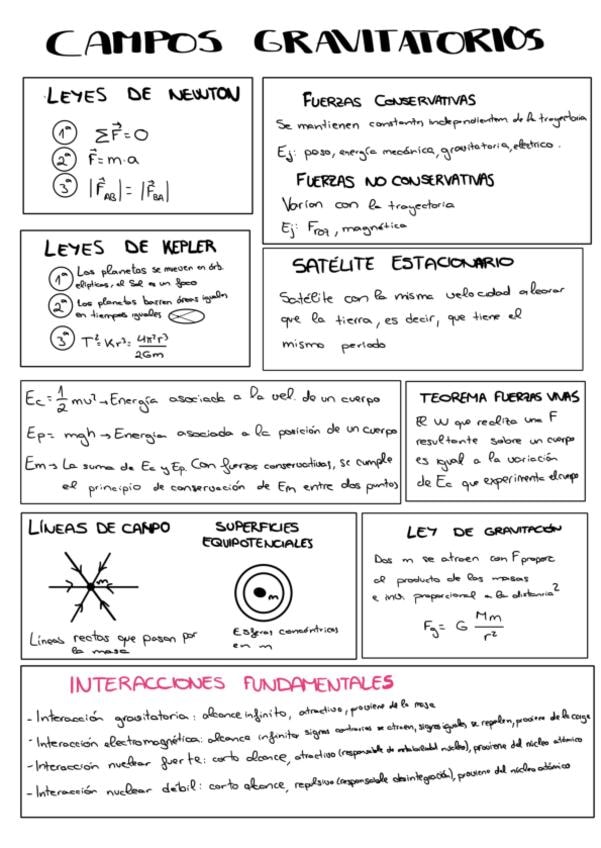 CAMPOS GRAVITATORIOS
LEYES DE NEWTON
1ª ΣF⃗=0
2ª F⃗=m·a
3ª |F⃗AB|=|F⃗BA|
FUERZAS CONSERVATIVAS
Se mantienen constantes independientem de la trayectoria
Ej: peso, energía mecánica, gravitatoria, eléctrico.
FUERZAS NO CONSERVATIVAS
Varían con la trayectoria
Ej: Froz, magnética
LEYES DE KEPLER
1ª Los planetas se mueven en órb.
elípticas, el Sol es un foco
2ª Los planetas barren áreas iguales
en tiempos iguales
3ª T²=Kr³= 4π²r³
2Gm
SATÉLITE ESTACIONARIO
Satélite con la misma velocidad
que la tierra, es decir, que tiene el
mismo periodo
Ec=1/2 mv²→Energía asociada a la vel. de un cuerpo
Ep=mgh→Energía asociada a la posición de un cuerpo
Em→ La suma de Ec y Ep. Con fuerzas conservativas, se cumple
el principio de conservación de Em entre dos puntos
TEOREMA FUERZAS VIVAS
El W que realiza una F
resultante sobre un cuerpo
es igual a la variación
de Ec que experimenta el cuerpo
LÍNEAS DE CAMPO
m
Líneas rectas que pasan por
la masa
SUPERFICIES
EQUIPOTENCIALES
m
Esferas concéntricas
en m
LEY DE GRAVITACIÓN
Dos m se atraen con F proporc
al producto de las masas
e inv. proporcional a la distancia²
Fg= G Mm
r²
INTERACCIONES FUNDAMENTALES
- Interacción gravitatoria: alcance infinito, atractiva, proviene de la masa
- Interacción electromagnética: alcance infinito signos contrarios se atraen, signos iguales se repelen, proviene de la carga
- Interacción nuclear fuerte: corto alcance, atractiva (responsable de estabilidad nucleo), proviene del núcleo atómico
- Interacción nuclear débil: corto alcance, repulsiva (responsable desintegración), proviene del núcleo atómico